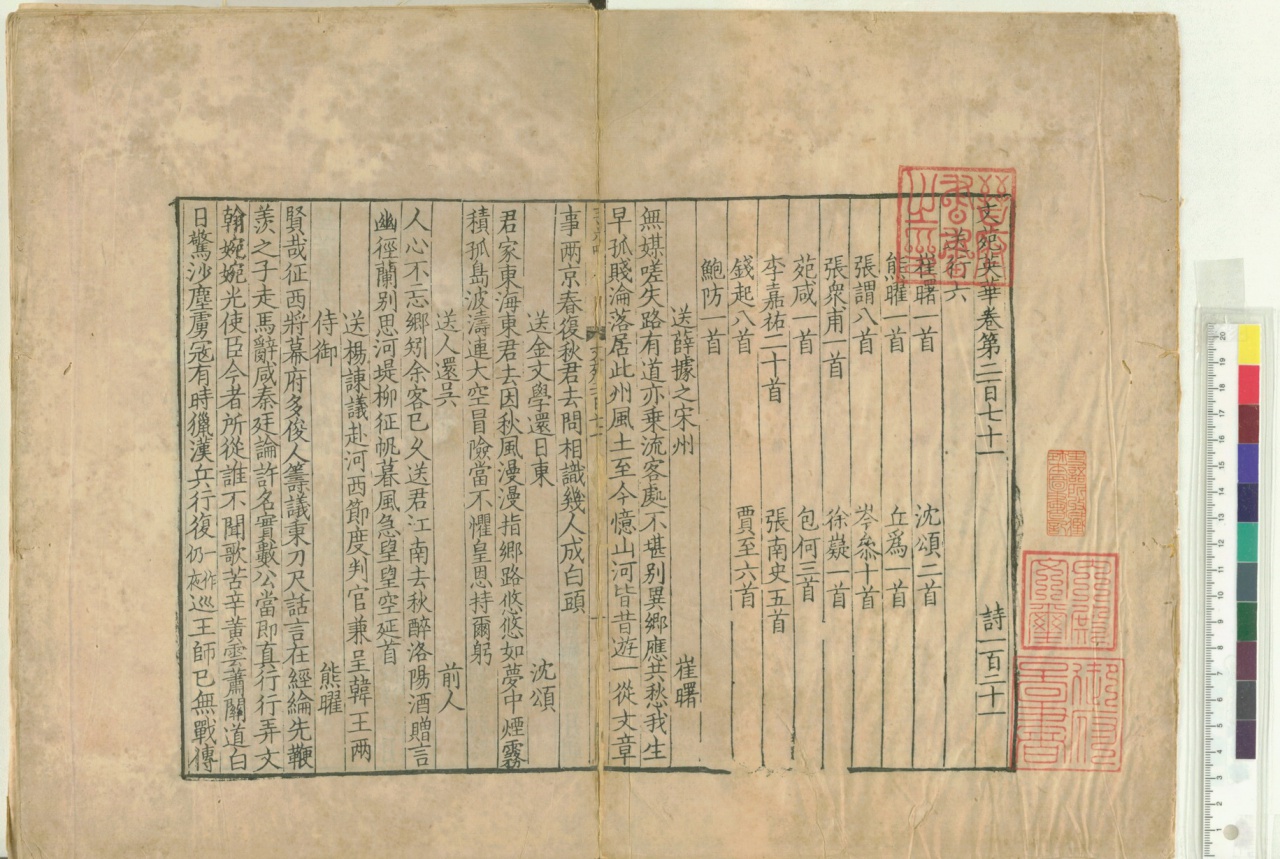 文苑英華卷第二百七十一　詩一百三十一
送行六
崔曙一首　沈頌二首
熊曜一首　丘爲一首
張謂八首　岑參十首
張衆甫一首　徐嶷一首
苑咸一首　包何三首
李嘉祐二十首　張南史五首
錢起八首　賈至六首
鮑防一首
送薛據之宋州　崔曙
無媒嗟失路有道亦乗流客處不堪别異鄉應共愁我生
早孤賤淪落居此州風土至今憶山河皆昔遊一從文章
事兩京春復秋君去問相識幾人成白頭
送金文學還日東　沈頌
君家東海東君去因秋風漫漫指鄉路悠悠如夢中煙霧
積孤島波濤連大空冒險當不懼皇恩持爾躬
送人還吴　前人
人心不忘鄉矧余客已久送君江南去秋醉洛陽酒贈言
幽徑蘭别思河堤柳征帆暮風急望望空延首
送楊諫議赴河西節度判官兼呈韓王兩
侍御　熊曜
賢哉征西將幕府多俊人籌議秉刀尺話言在經綸先鞭
羨之子走馬辭咸秦廷論許名實數公當即真行行弄文
翰婉婉光使臣今者所從誰不聞歌苦辛黄雲蕭關道白
日驚沙塵虜冦有時獵漢兵行復一作仍夜巡王師已無戰傳